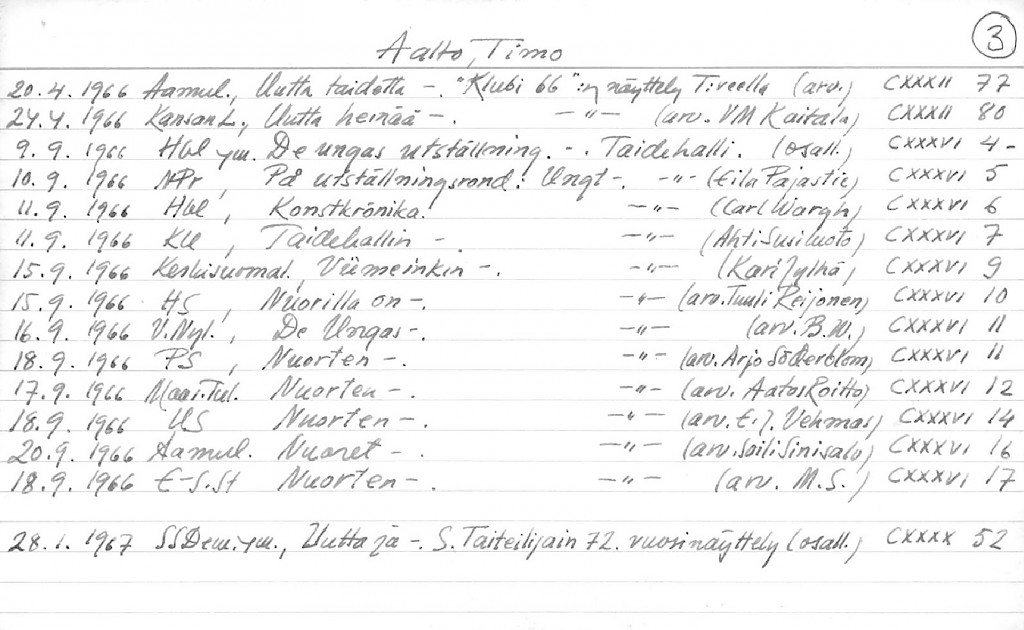 3
Aalto, Timo
20.4.1966 Aamul., Uutta taidetta -. "Klubi 66":n näyttely Tireella (arv.) CXXXII 77
24.4.1966 Kansan L., Uutta heinää -. -"- (arv. VM Kaitala) CXXXII 80
9.9.1966 Hbl ym. De ungas utställning. -. Taidehalli. (osall.) CXXXVI 4-
10.9.1966 NPr, På utställningsrond: Ungt -. -"- (Eila Pajastie) CXXXVI 5
11.9.1966 Hbl, Konstkrönika. -"- (Carl Wargh) CXXXVI 6
11.9.1966 KU, Taidehallin -. -"- (Ahti Susiluoto) CXXXVI 7
15.9.1966 Keskisuomal., Viimeinkin -. -"- (Kari Jylhä) CXXXVI 9
15.9.1966 HS, Nuorilla on -. -"- (arv. Tuuli Reijonen) CXXXVI 10
16.9.1966 V.Nyl., De Ungas -. -"- (arv. B.W.) CXXXVI 11
18.9.1966 PS, Nuorten -. -"- (arv. Arjo Söderblom) CXXXVI 11
17.9.1966 Maas.Tul. Nuorten -. -"- (arv. Aatos Roitto) CXXXVI 12
18.9.1966 US Nuorten -. -"- (arv. E.J. Vehmas) CXXXVI 14
20.9.1966 Aamul. Nuoret -. -"- (arv. Soili Sinisalo) CXXXVI 16
18.9.1966 E-S.St Nuorten -. -"- (arv. M.S.) CXXXVI 17
28.1.1967 SSDem. ym., Uutta ja -. S. Taiteilijain 72. vuosinäyttely (osall.) CXXXX 52